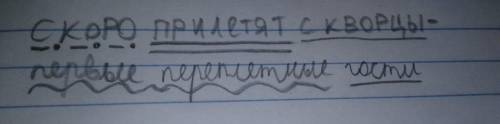 СКОРО ПРИЛЕТЯТ СКВОРЦЫ-
первые перелетные гости